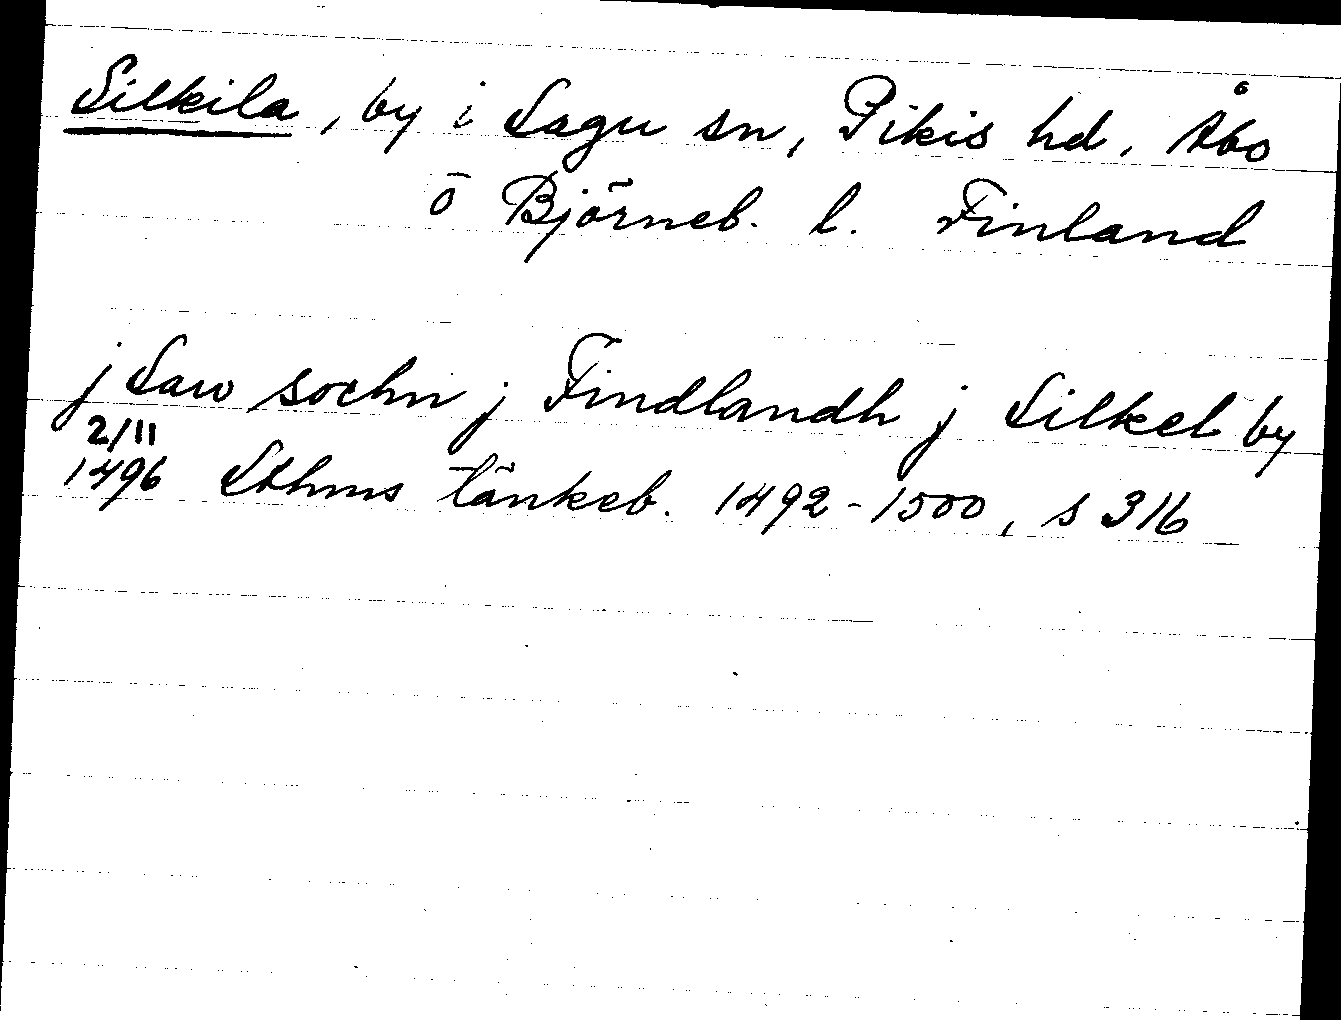 Silkila, by i Sagu sn, Pikis hd. Åbo
o Björneb. l. Finland
j Saw sochn j Findlandh j Silkel by
2/11
1496 Sthms tänkeb. 1492-1500, s 316